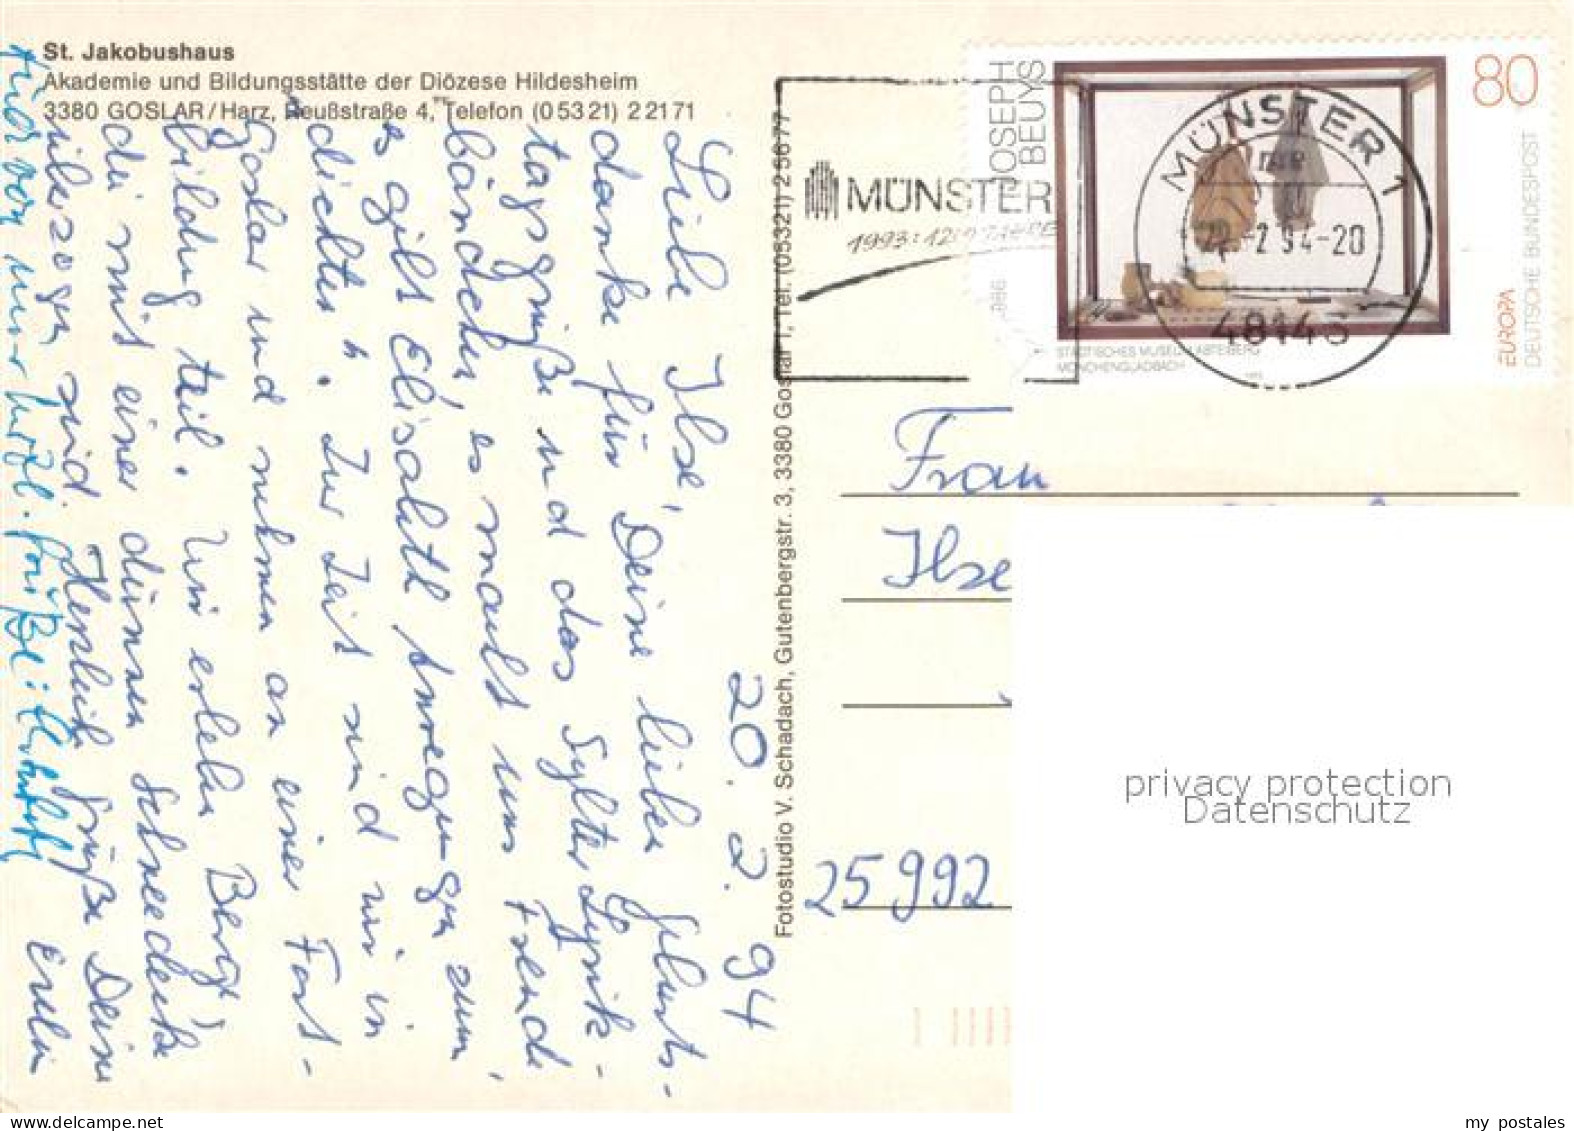 St. Jakobushaus
Akademie und Bildungsstätte der Diözese Hildesheim
3380 GOSLAR/Harz, Reußstraße 4, Telefon (05321) 22171
20. 2. 94
Liebe Ilse,
danke für Deine lieben Geburts-
tagsgrüße und das Sylter Lyrik-
bändchen, es macht uns Freude,
es gibt Elisabeth Anregungen zum
"dichten". Zur Zeit sind wir in
Goslar und nehmen an einer Fort-
bildung teil. Wir erleben Berge,
die mit einer dünnen Schneedecke
überzogen sind. Herzlich grüße Deine
Erika
auch von mir herzl. Grüße:
Fotostudio V. Schadach, Gutenbergstr. 3, 3380 Goslar 1, Tel. (05321) 25677
MÜNSTER
1993: 1200 JAHRE
JOSEPH
BEUYS
80
MÜNSTER 1
-2.94-20
48143
STÄDTISCHES MUSEUM ABTEIBERG
MÖNCHENGLADBACH
EUROPA
DEUTSCHE BUNDESPOST
Frau
Ilse
25992
privacy protection
Datenschutz
delcampe.net
my postales